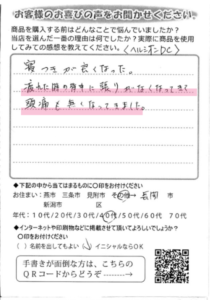 お客様のお喜びの声をお聞かせください。
商品を購入する前はどんなことで悩んでいましたか?
当店を選んだ一番の理由は何でしたか?実際に商品を使用
してみての感想を教えてください。〈ヘルシオンDC〉
寝つきが良くなった。
疲れた時の背中に張りがなくなってきて
頭痛も無くなってきました。
◆下記の中から当てはまるものに○印をお付けください
お住まい:燕市 三条市 見附市 その他→ 長岡 市
新潟市 区
年代:10代/20代/30代/40代/50代/60代 70代
◆インターネットや印刷物などに掲載させて頂いてよろしいでしょうか?
○印をお付けください
( )名前を出してもよい イニシャルならOK
手書きが面倒な方は、こちらの
QRコードからどうぞ